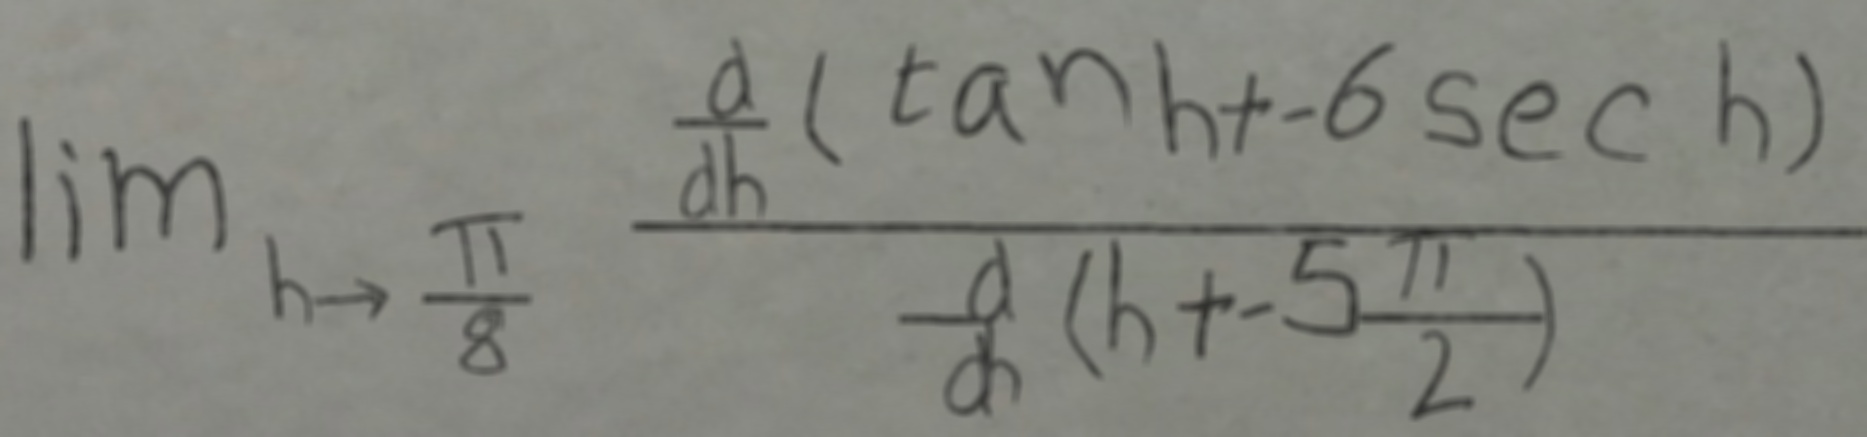 \lim_{h \to \frac{\pi}{8}} \frac{\frac{d}{dh}(\tan h + -6 \sec h)}{\frac{d}{dh}(h + -5\frac{\pi}{2})}